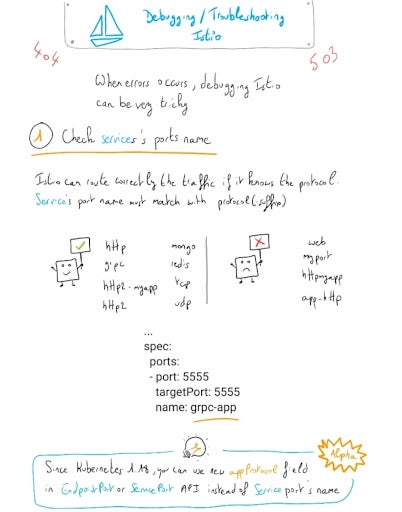 Debugging / Troubleshooting
Istio
404
503
When errors occurs, debugging Istio
can be very tricky
1 Check services's ports name
Istio can route correctly the traffic if it knows the protocol.
Service's port name must match with protocol(-suffix)
http mongo
grpc redis
http2-myapp tcp
http2 udp
web
myport
httpmyapp
app-http
...
spec:
ports:
- port: 5555
targetPort: 5555
name: grpc-app
Alpha
Since Kubernetes 1.18, you can use new appProtocol field
in EndpointPort or ServicePort API instead of Service port's name